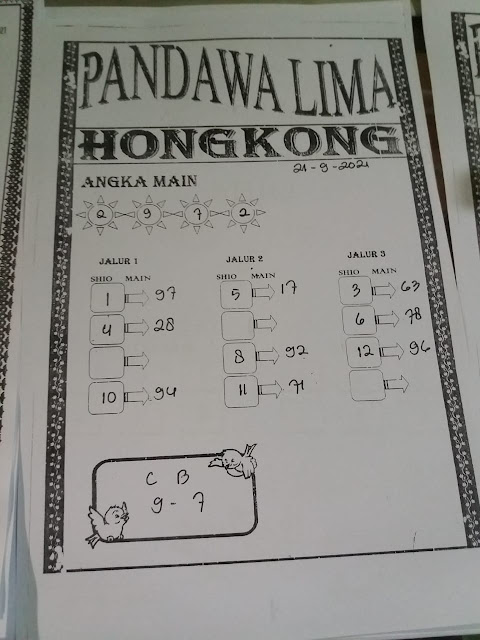 PANDAWA LIMA
HONGKONG
21-9-2021
ANGKA MAIN
2 9 7 2
JALUR 1 JALUR 2 JALUR 3
SHIO MAIN SHIO MAIN SHIO MAIN
1 97 5 17 3 63
4 28 6 78
8 92 12 96
10 94 11 71
C B
9 - 7